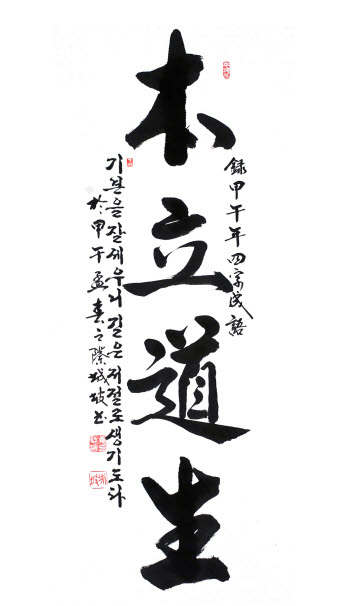 錄甲午年四字成語
本立道生
기본을잘세우니길은저절로생기도다
於甲午孟春之際城坡书